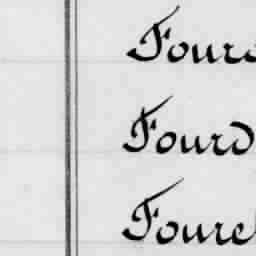 Fourd
Fourd
Foure